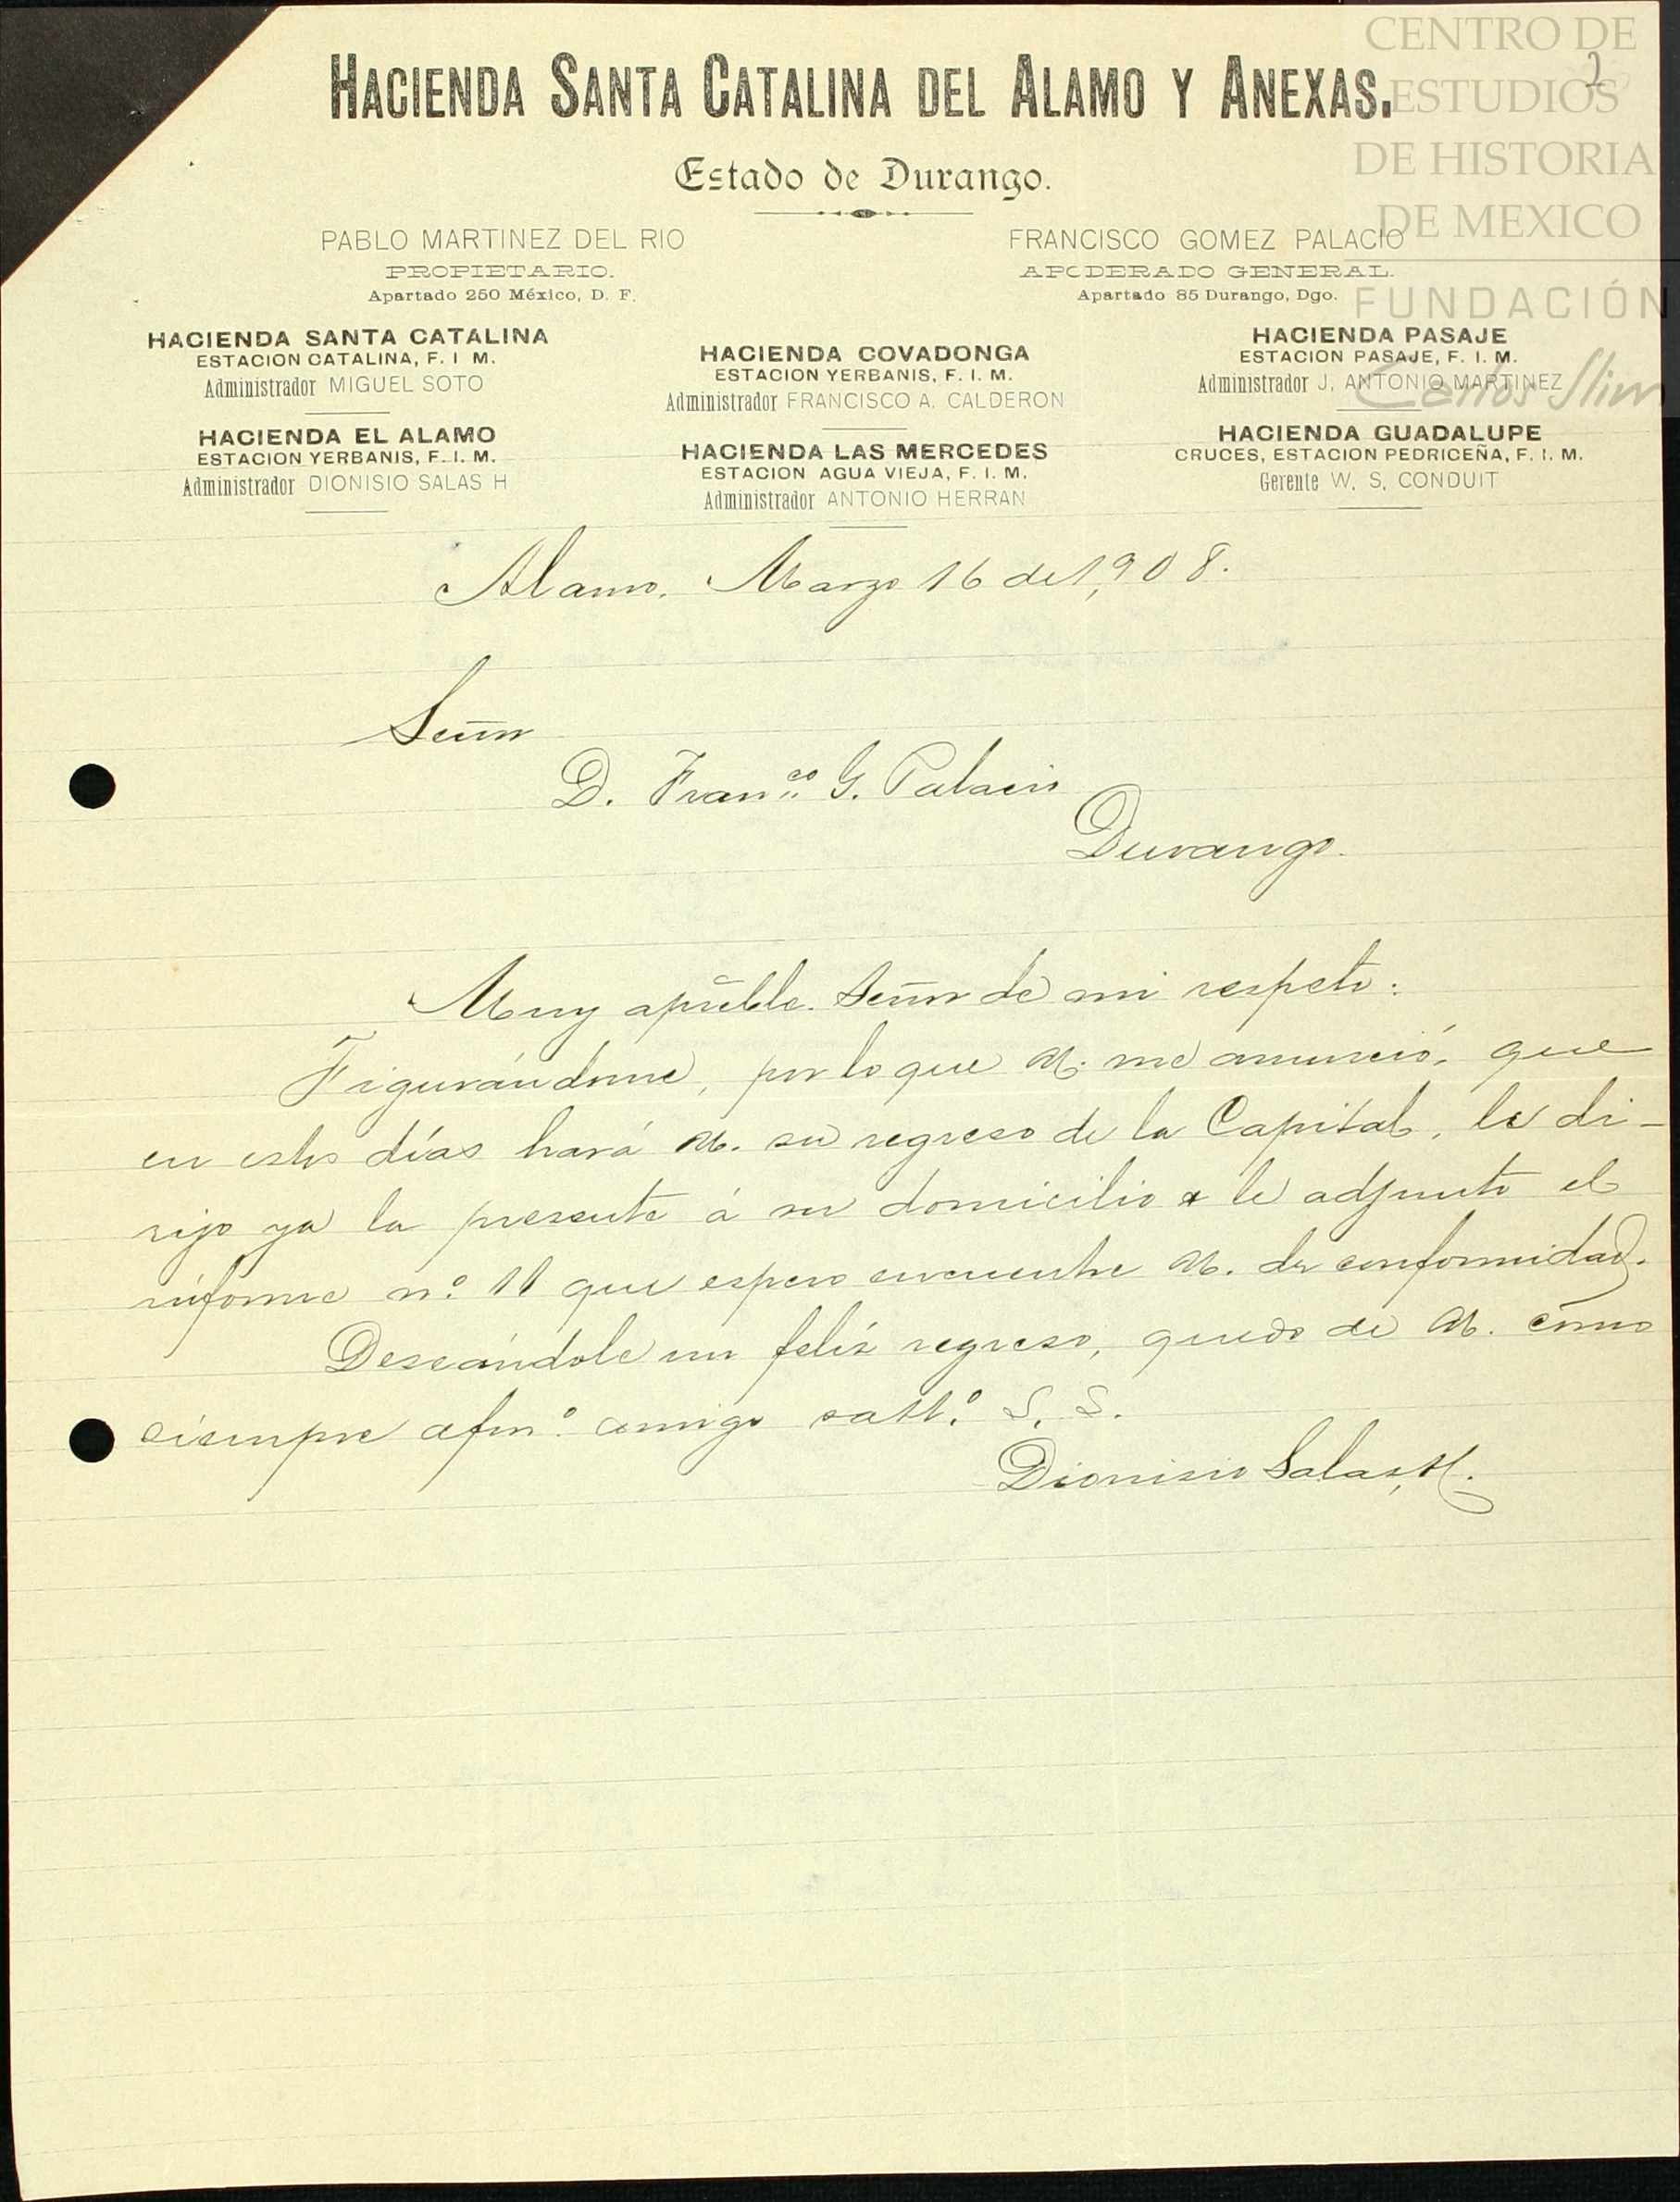 CENTRO DE
ESTUDIOS
DE HISTORIA
DE MEXICO
FUNDACIÓN
Carlos Slim
2
HACIENDA SANTA CATALINA DEL ALAMO Y ANEXAS.
Estado de Durango.
PABLO MARTINEZ DEL RIO
PROPIETARIO.
Apartado 250 México, D. F.
FRANCISCO GOMEZ PALACIO
APODERADO GENERAL.
Apartado 85 Durango, Dgo.
HACIENDA SANTA CATALINA
ESTACION CATALINA, F. I M.
Administrador MIGUEL SOTO
HACIENDA EL ALAMO
ESTACION YERBANIS, F. I. M.
Administrador DIONISIO SALAS H
HACIENDA COVADONGA
ESTACION YERBANIS, F. I. M.
Administrador FRANCISCO A. CALDERON
HACIENDA LAS MERCEDES
ESTACION AGUA VIEJA, F. I. M.
Administrador ANTONIO HERRAN
HACIENDA PASAJE
ESTACION PASAJE, F. I. M.
Administrador J, ANTONIO MARTINEZ
HACIENDA GUADALUPE
CRUCES, ESTACION PEDRICEÑA, F. I. M.
Gerente W. S. CONDUIT
Alamo, Marzo 16 de 1,908.
Señor
D. Franco. G. Palacio
Durango.
Muy apreble. Señor de mi respeto:
Figurándome, por lo que U. me anunció, que
en estos días hará U. su regreso de la Capital, le di-
rijo ya la presente á su domicilio y le adjunto el
informe n.º 11 que espero encuentre U. de conformidad.
Deseándole un feliz regreso, quedo de U. como
siempre afmo. amigo atto. S. S.
Dionisio Salas, H.